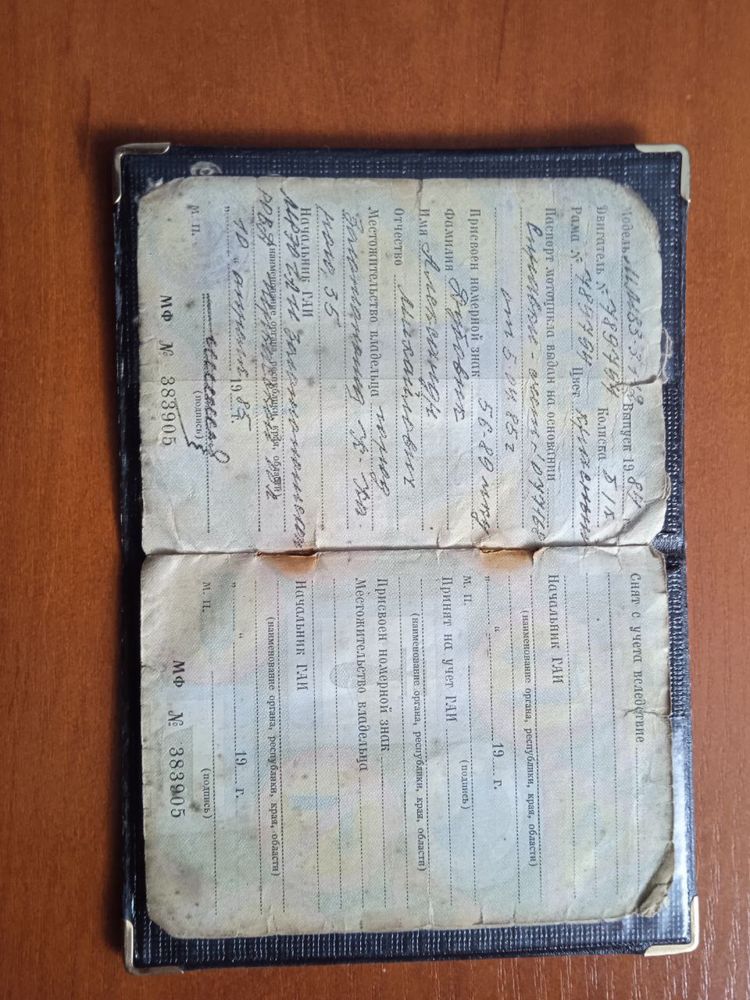 Модель ММВЗ-3.119 Выпуск 1984
Двигатель № 789794 Коляска Б/к
Рама № 789794 Цвет
Паспорт мотоцикла выдан на основании
Справки-счета 077168
от 5.04.85 г
Присвоен номерной знак 56-89
Фамилия
Имя Александр
Отчество Михайлович
Местожительство владельца
35
Начальник ГАИ
(наименование органа, республики, края, области)
" 10 " апреля 1985 г.
м. п. (подпись)
МФ № 383905
Снят с учета вследствие
Начальник ГАИ
(наименование органа, республики, края, области)
" " 19 г.
м. п. (подпись)
Принят на учет ГАИ
(наименование органа, республики, края, области)
Присвоен номерной знак
Местожительство владельца
Начальник ГАИ
(наименование органа, республики, края, области)
" " 19 г.
м. п. (подпись)
МФ № 383905